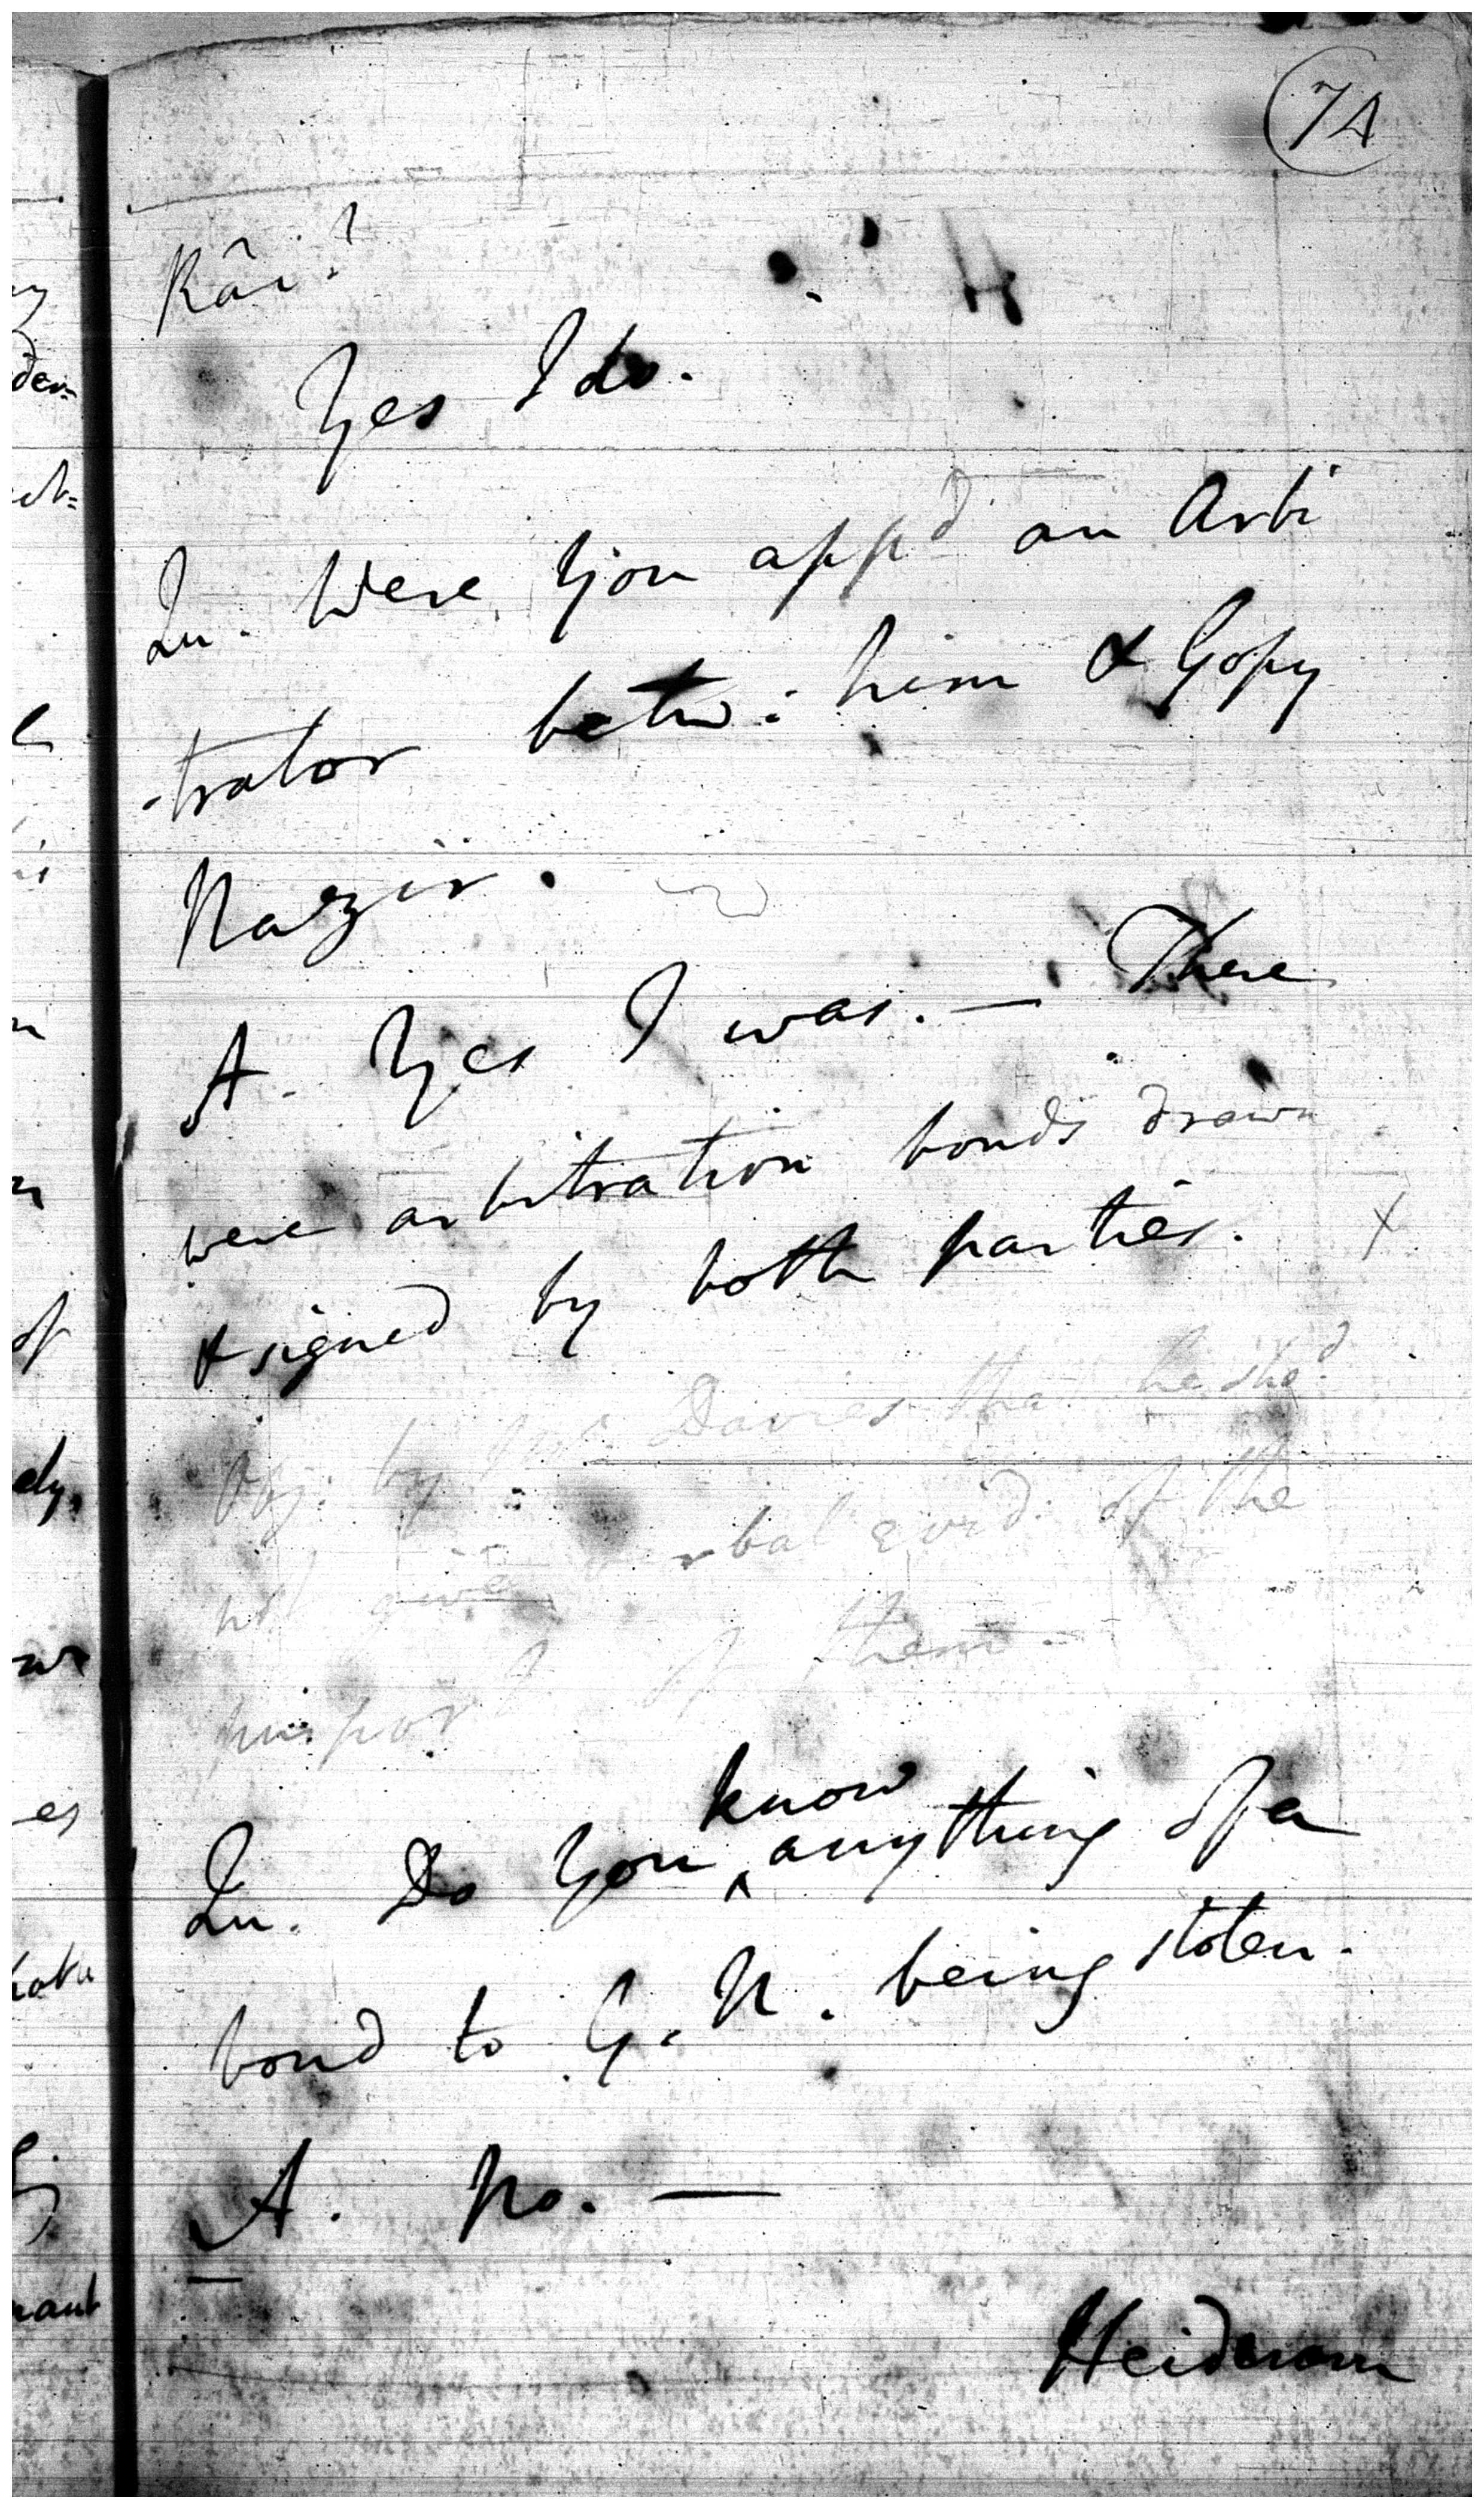 74
Râi?
Yes I do.
Qu. Were you app^d an Arbi
-trator betw: him & Gopy
Nazir.
A. Yes I was. — There
were arbitration bonds drawn
& signed by both parties. X
Obj. by Mr. Davies that he sho^d
not give verbal evid: of the
purport of them -
know
Qu. Do you ^ anything of a
bond to G. N. being stolen.
A. No. —
Heideram